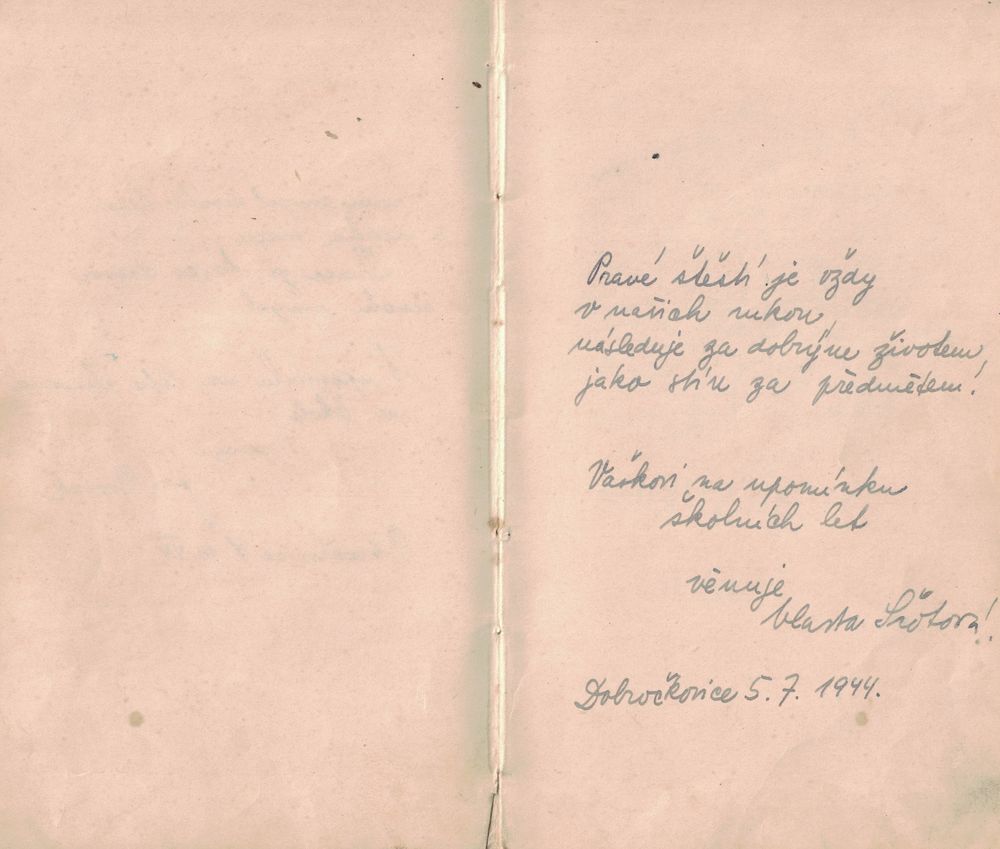 Pravé štěstí je vždy
v našich rukou,
následuje za dobrým životem,
jako stín za předmětem!
Vaškovi na upomínku
školních let
věnuje
Vlasta
Dobročkovice 5. 7. 1944.